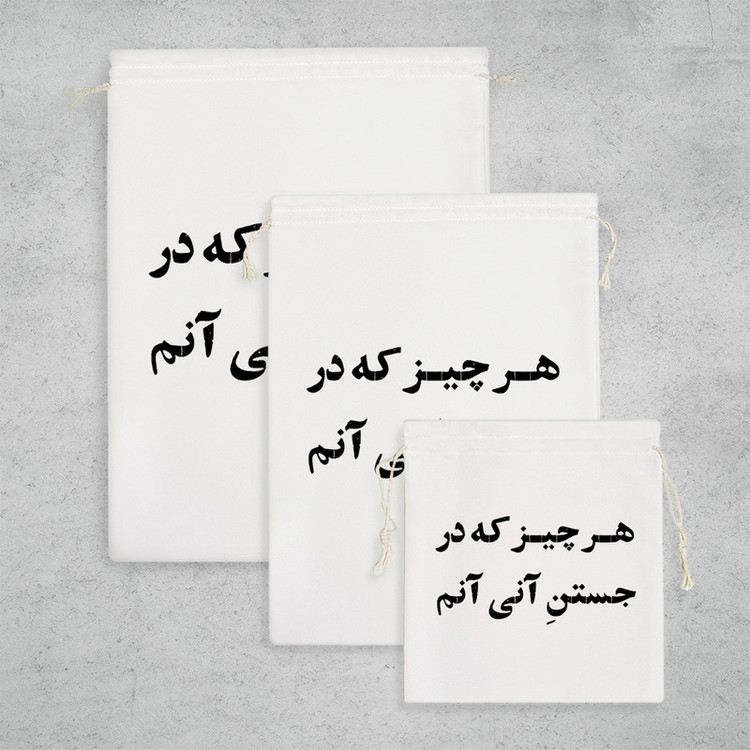 که در
ی آنم
هر چیز که در
ی آنم
هر چیز که در
جستنِ آنی آنم